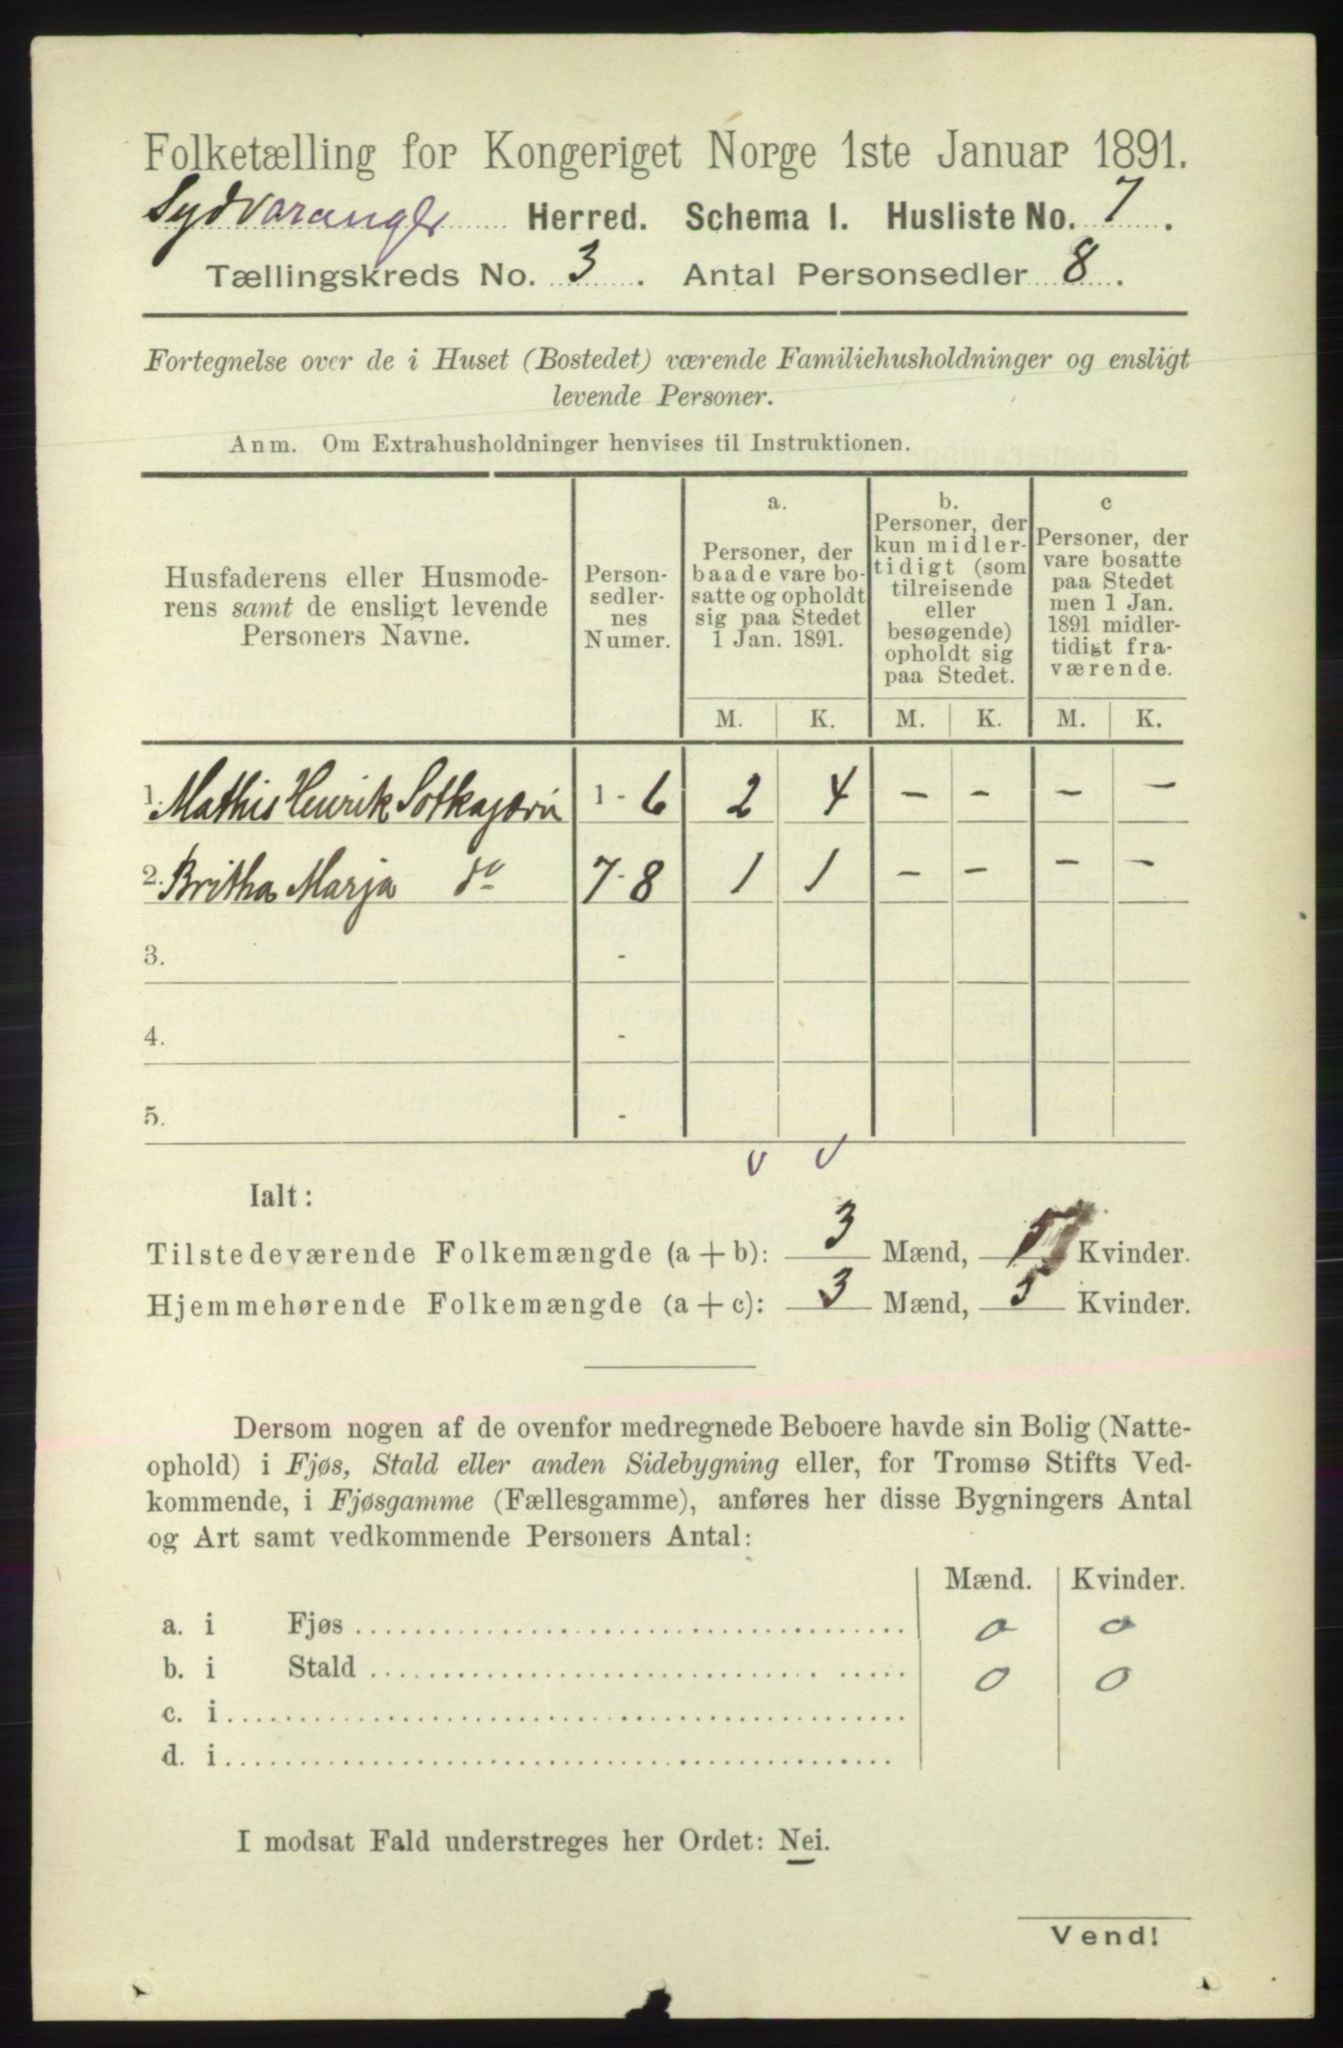 Folketælling for Kongeriget Norge 1ste Januar 1891.
Sydvaranger Herred. Schema 1. Husliste No. 7.
Tællingskreds No. 3. Antal Personsedler 8.
Fortegnelse over de i Huset (Bostedet) værende Familiehusholdninger og ensligt
levende Personer.
Anm. Om Extrahusholdninger henvises til Instruktionen.
Husfaderens eller Husmode-
rens samt de ensligt levende
Personers Navne.
Person-
sedler-
nes
Numer.
a.
Personer, der
baade vare bo-
satte og opholdt
sig paa Stedet
1 Jan. 1891.
b.
Personer, der
kun midler-
tidigt (som
tilreisende
eller
besøgende)
opholdt sig
paa Stedet.
c
Personer, der
vare bosatte
paa Stedet
men 1 Jan.
1891 midler-
tidigt fra-
værende.
M. K. M. K. M. K.
1. Mathis Henrik Sotkajærvi 1 - 6 2 4 - - - -
2. Britha Marja do 7 - 8 1 1 - - - -
3. -
4. -
5. -
Ialt:
Tilstedeværende Folkemængde (a + b): 3 Mænd, 5 Kvinder.
Hjemmehørende Folkemængde (a + c): 3 Mænd, 5 Kvinder.
Dersom nogen af de ovenfor medregnede Beboere havde sin Bolig (Natte-
ophold) i Fjøs, Stald eller anden Sidebygning eller, for Tromsø Stifts Ved-
kommende, i Fjøsgamme (Fællesgamme), anføres her disse Bygningers Antal
og Art samt vedkommende Personers Antal:
Mænd. Kvinder.
a. i Fjøs 0 0
b. i Stald 0 0
c. i
d. i
I modsat Fald understreges her Ordet: Nei.
Vend!